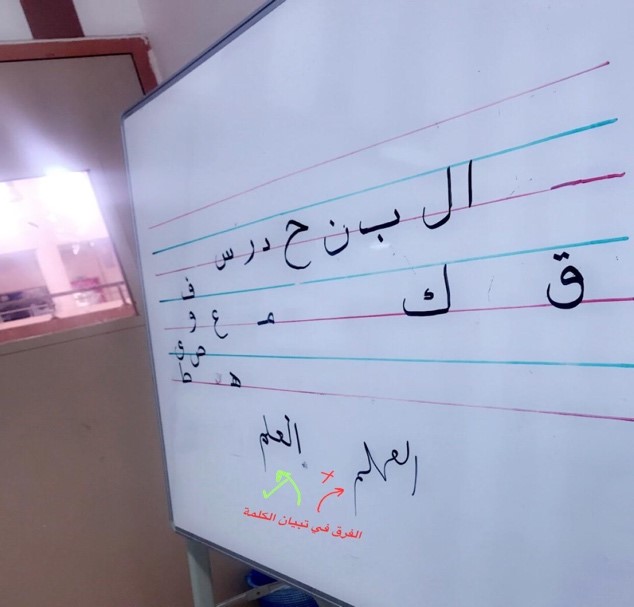 ا ل ب ن ح د ر س ف
ق ك م ع و
ص ق
ه ط
العلم العلم
الفرق في تبيان الكلمة